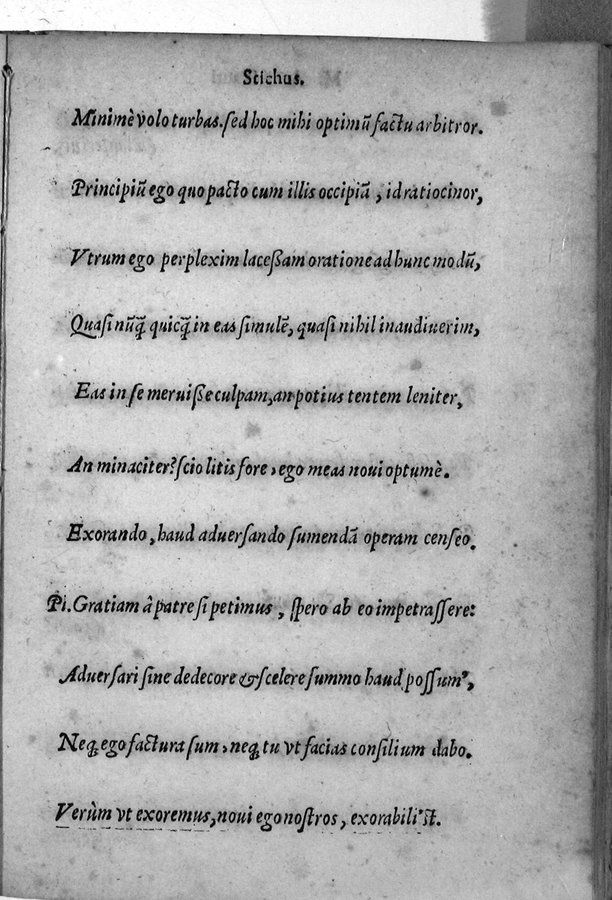 Stichus.
Minimè volo turbas. sed hoc mihi optimū factu arbitror.
Principiū ego quo pacto cum illis occipiā, id ratiocinor,
Vtrum ego perplexim laceßam oratione ad hunc modū,
Quasi nūq̄ quicq̄ in eas simulē, quasi nihil inaudiuerim,
Eas in se meruiße culpam, an potius tentem leniter,
An minaciter? scio litis fore, ego meas noui optumè.
Exorando, haud aduersando sumendā operam censeo.
Pi. Gratiam â patre si petimus, spero ab eo impetrassere:
Aduersari sine dedecore & scelere summo haud possumꝰ,
Neq; ego factura sum, neq; tu vt facias consilium dabo.
Verùm vt exoremus, noui ego nostros, exorabili'st.